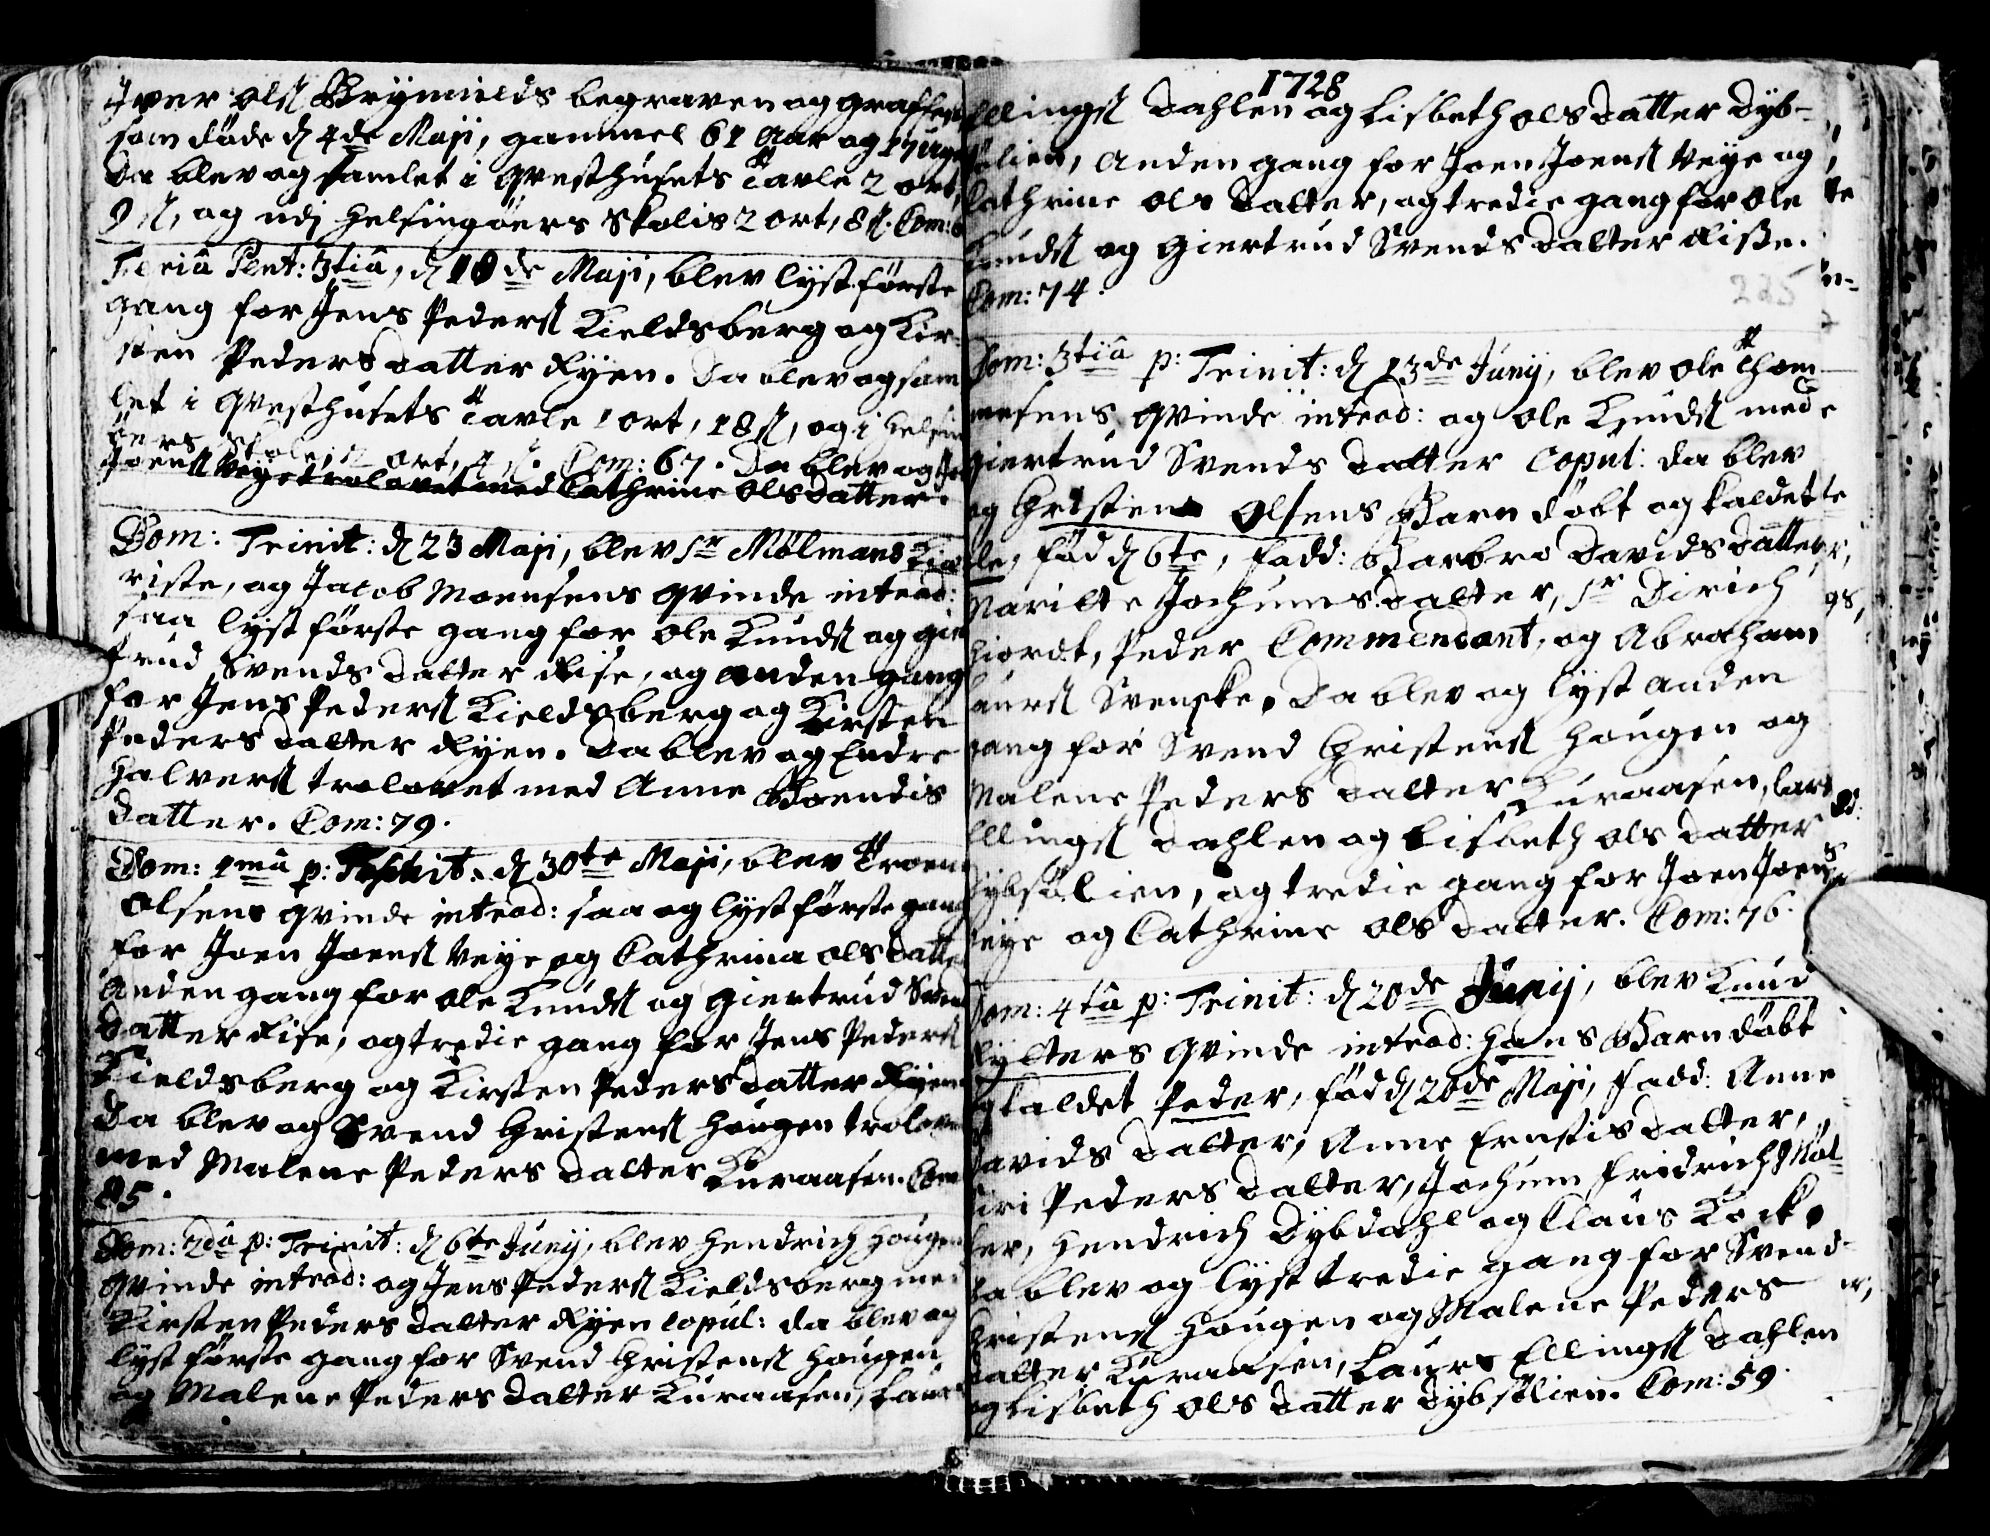 Iver Ols: Brynnilds begraven og graffest
som døde d 4de Maji, gammel 61 Aar og 17 uger
Da blev og samlet i Qvesthusets Tavle 2 ort,
9 s, og udj Helsingøers Skolis 2 ort, 8 s. Com:
Feria Pent: 3tia, d 18de Maji, blev lyst første
gang for Jens Peders: Kieldsberg og Kir-
sten Peders datter Ryen. Da blev og sam
let i Qvesthusets Tavle 1 ort, 18 s, og i Helsin
øers Skole, ort, s. Com: 67. Da blev og
Joens: Veye trolovet med Cathrine Ols datter.
Dom: Trinit: d 23 Maji, blev Sr Mølmans
riste, og Jacob Monsens Qvinde introd:
saa lyst første gang for Ole Knuds: og Gier
trud Svends datter Rise, og anden gang
for Jens Peders: Kieldsberg og Kirsten
Peders datter Ryen. Da blev og Endre
Halvers: trolovet med Anne Boendis
datter. Com: 79.
Dom: 1ma p: Trinit: d 30te Maji, blev Troen
Olsens Qvinde introd: saa og lyst første gang
for Joen Joens: Veye og Cathrina Ols datte
Anden gang for Ole Knuds: og Giertrud Sven
datter Rise, og tredie gang for Jens Peders:
Kieldsberg og Kirsten Peders datter Ryen
Da blev og Svend Christens: Hougen trolove
med Malene Peders datter Kuraasen. Com
85.
Dom: 2da p: Trinit: d 6te Junij, blev Hendrich Hougen
Qvinde introd: og Jens Peders: Kieldsberg med
Kirsten Peders datter Ryen copul: da blev og
lyst første gang for Svend Christens: Hougen
og Malene Peders datter Kuraasen, Laur
1728
Ellings: Dahlen og Lisbeth Ols datter Dyb-
sølien, Anden gang for Joen Joens: Veye og
Cathrine Ols datter, og tredie gang for Ole
Knuds: og Giertrud Svends datter Risse.
Com: 74.
225
Dom: 3tia p: Trinit: d 13de Junij, blev Ole Thom
mesens Qvinde introd: og Ole Knuds: med
Giertrud Svends datter copul: da blev
og Christen Olsens Barn døbt og kaldet
Ole, fød d 6te, fadd: Barbro Davids datter,
Marilte Jochums datter, Sr Dirich
Hiordt, Peder Commendant, og Abraham
Laurs: Svenske. Da blev og lyst anden
gang for Svend Christens: Hougen og
Malene Peders datter Kuraasen, Lars
Ellings: Dahlen og Lisbeth Ols datter
Dybsølien, og tredie gang for Joen Joens
Veye og Cathrine Ols datter. Com: 76.
Dom: 4ta p: Trinit: d 20de Junij, blev Knud
Rylters Qvinde introd: Hans Barn døbt
og kaldet Peder, fød d 26de Maji, fadd: Anne
Davids datter, Anne Ernstis datter,
Siri Peders datter, Jochum Fridrich Møl
ler, Hendrich Dybdahl og Claus Kock.
Da blev og lyst tredie gang for Svend
Christens: Hougen og Malene Peders
datter Kuraasen, Laurs Ellings: Dahlen
og Lisbeth Ols datter Dybsølien. Com: 59.